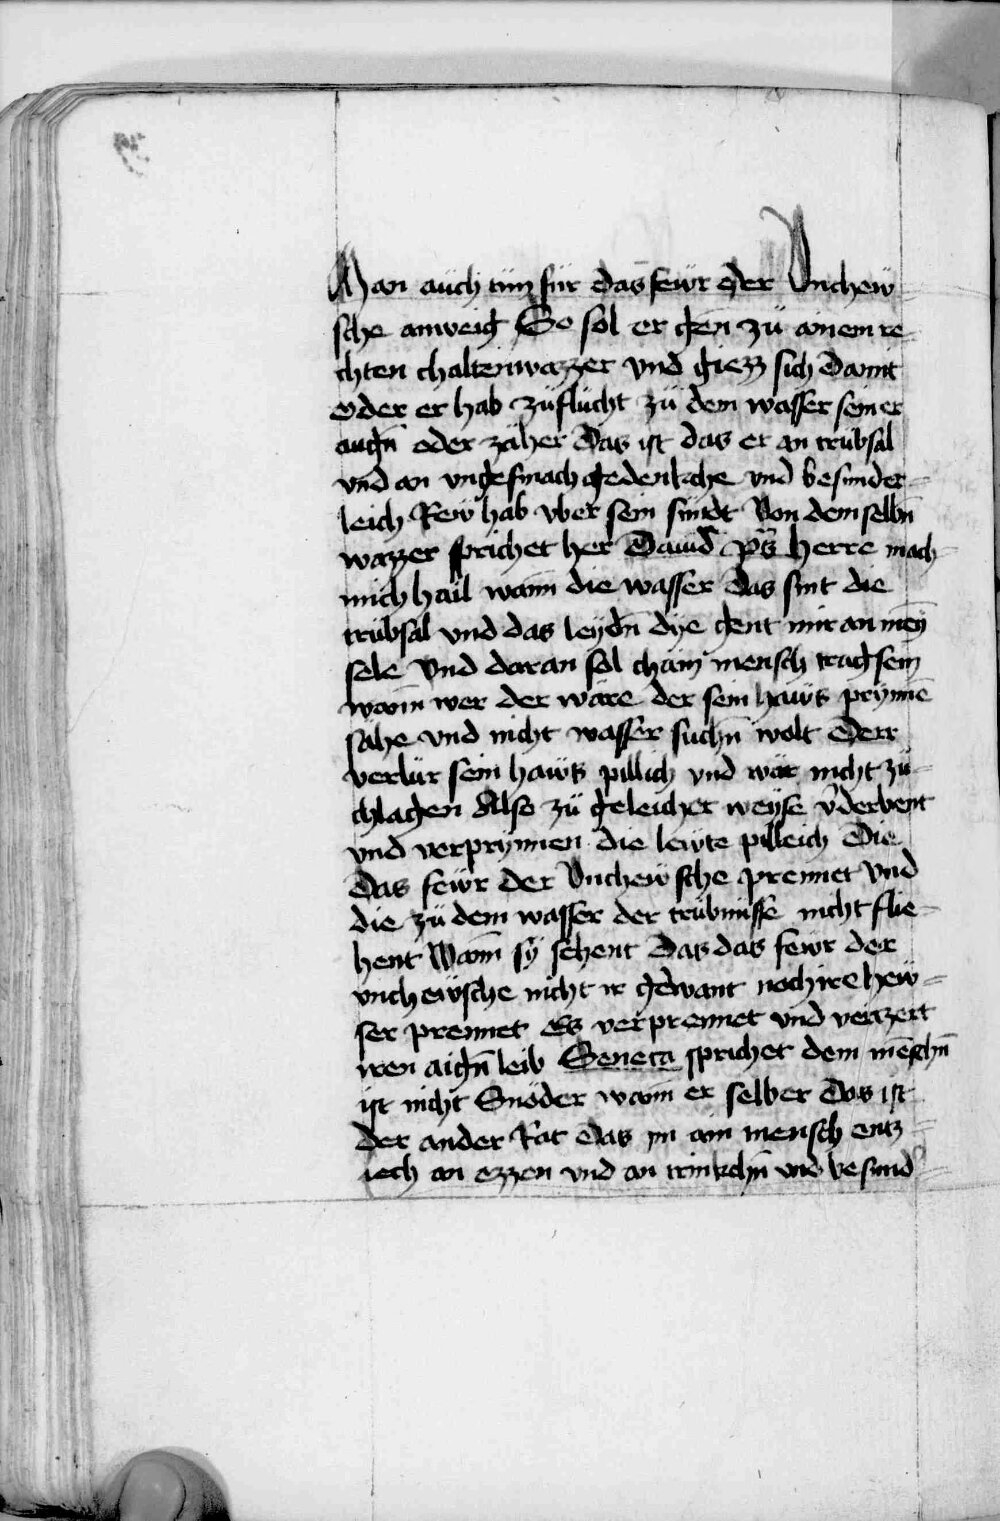 Man auch tun für das fewr der Vnchew
sche anweig So sol er gen zü ainem re-
chten chaltenwazzer vnd giezz sich damit
oder er hab züflücht zü dem wasser seiner
augn̄ oder zäher Das ist das er an trübsal
vnd an vngesmach gedenkche vnd besunder-
leich Rew hab vber sein sündt Von dem selbn̄
wazzer sprichet her Dauid ps̄ Herre mach
mich hail wann die wasser das sint die
trübsal vnd das leydn̄ dye gent mir an mey̅
sele Vnd daran sol chain mensch trag sein
wann wer der wäre der sein haws prynnē
sahe vnd nicht wasser suchn̄ wolt Derr
verlür sein haws pillich vnd wär nicht zü-
chlagen Also zü geleicher weyse v̄derbent
vnd verprynnen die lewte pilleich Die
Das fewr der Vnchewsche prennet Vnd
die zü dem wasser der trübnüsse nicht flie-
hent Wann sÿ sehent Das das fewr der
vnchewsche nicht ir gewant noch ire hew-
ser prennet Es verprennet vnd verczert
iren aign̄ leib Seneca sprichet dem mēschn̄
ist nicht Snöder wann er selber Das ist
der ander Rat Das im ain mensch entz-
iech an ezzen vnd an trinkchn̄ vnd besund̄-